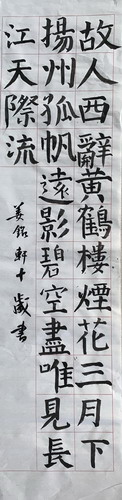 故人西辭黃鶴樓煙花三月下
揚州孤帆遠影碧空盡唯見長
江天際流
姜銀軒十歲書